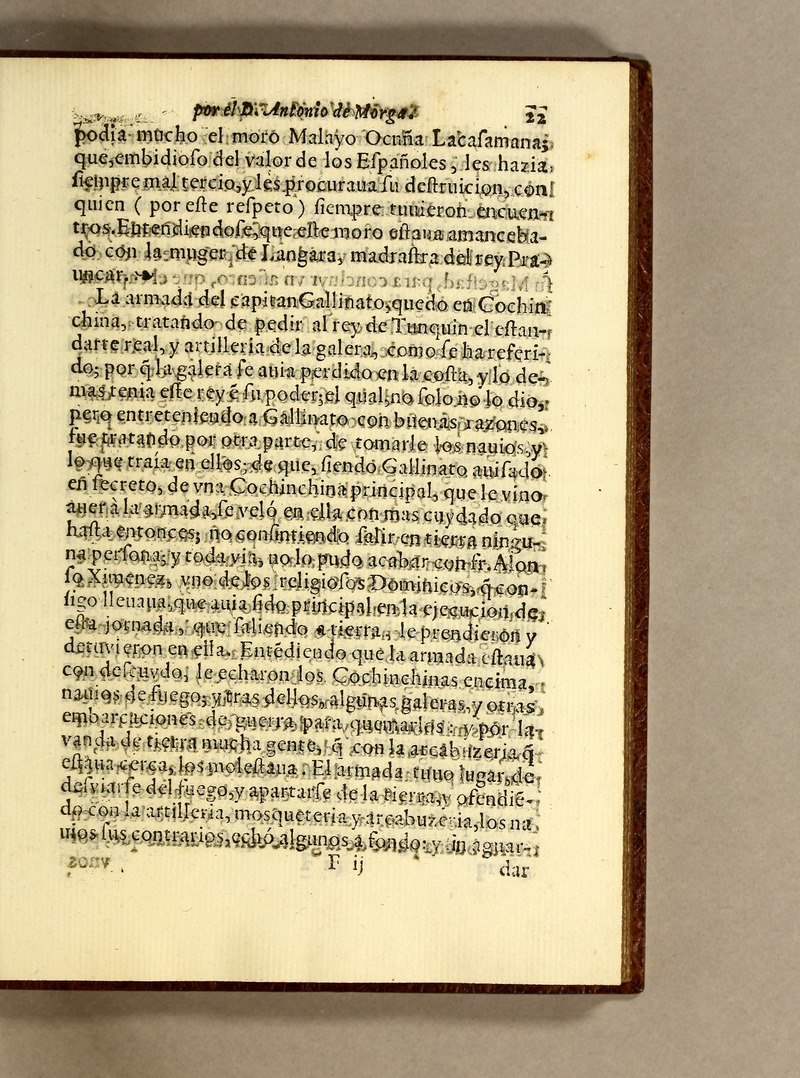 por el D. Antonio de Morga. 22
podia mucho el moro Malayo Ocuña Lacasamana;
que, embidioso del valor de los Españoles, les hazia,
siempre mal tercio, y les procuraua su destruicion, con
quien ( por este respeto ) siempre tuuieron encuen-
tros. Entendiendose, que este moro estaua amanceba-
do con la muger de Langara, madrastra del rey Pra-
uncar.
La armada del capitan Gallinato, quedo en Cochin
china, tratando de pedir al rey de Tunquin el estan-
darte real, y artilleria de la galera, como se ha referi-
do; por q̃ la galera se auia perdido en la costa, y lo de-
mas tenia este rey ẽ su poder, el qual, no solo no lo dio,
pero entreteniendo a Gallinato con buenas razones,
fue tratando por otra parte, de tomarle los nauios, y
lo que traia en ellos, de que, siendo Gallinato auisado
en secreto, de vna Cochinchina principal, que le vino
a uer a la armada, se veló en ella con mas cuydado que
hasta entonces; no consintiendo salir en tierra ningu-
na persona; y toda via, no lo pudo acabar con fr. Alon
so Ximenez, vno de los religiosos Dominicos, q̃ con-
sigo lleuaua, que auia sido principal en la ejecucion de
esta jornada, que saliendo a tierra, le prendieron y
detuvieron en ella. Entẽdiendo que la armada estaua
con descuydo, le echaron los Cochinchinas encima,
nauios de fuego, y tras dellos, algunas galeras, y otras
embarcaciones de guerra para quemarlos: y por la
vanda de tierra mucha gente, q̃ con la arcabuzeria q̃
estaua cerca, los molestaua. El armada tuuo lugar, de
desviarse del fuego, y apartarse de la tierra, y ofendiẽ-
do con la artilleria, mosqueteria y arcabuzeria, los na
uios sus contrarios, echó algunos a fondo: y sin aguar-
F ij dar